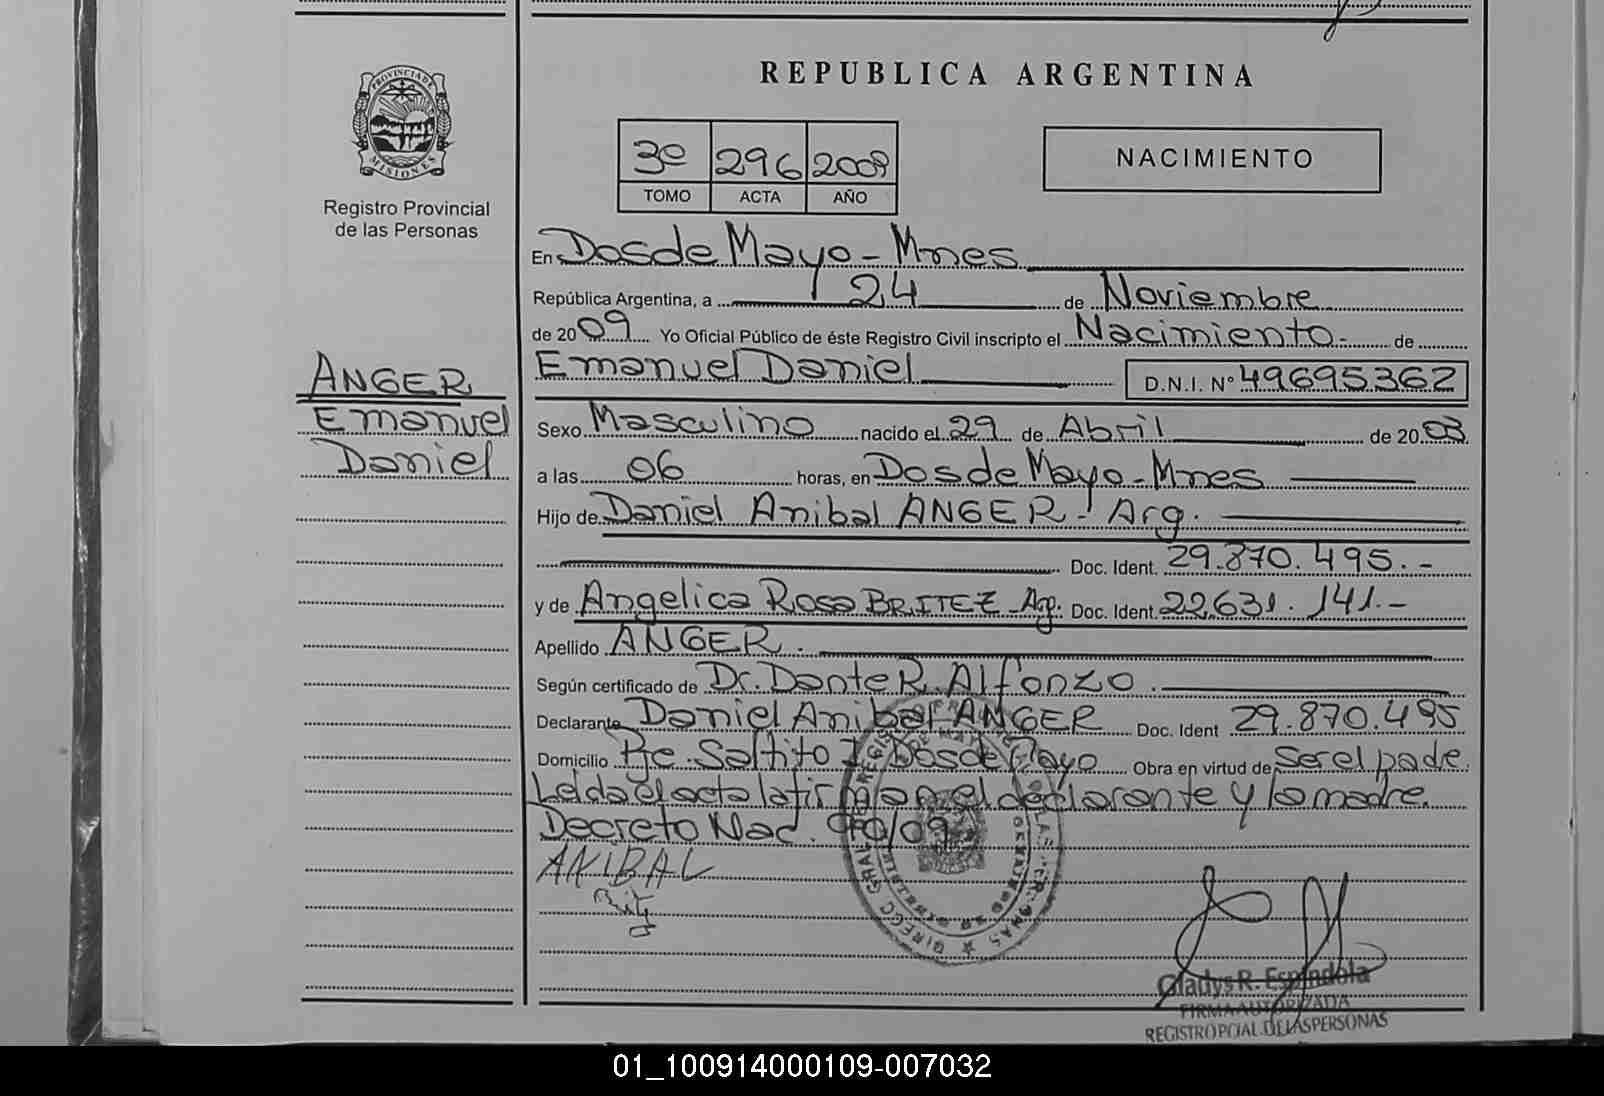 REPUBLICA ARGENTINA
PROVINCIA DE MISIONES
Registro Provincial
de las Personas
3º 296 2009
TOMO ACTA AÑO
NACIMIENTO
En Dos de Mayo - Mnes
República Argentina, a 24 de Noviembre
de 2009 Yo Oficial Público de éste Registro Civil inscripto el Nacimiento - de
Emanuel Daniel D.N.I. Nº 49695362
ANGER
Emanuel
Daniel
Sexo Masculino nacido el 29 de Abril de 2003
a las 06 horas, en Dos de Mayo - Mnes
Hijo de Daniel Anibal ANGER - Arg.
Doc. Ident. 29.870.495.-
y de Angelica Rosa BRITEZ - Arg. Doc. Ident. 22.631.141.-
Apellido ANGER.
Según certificado de Dr. Dante R. Alfonzo.
Declarante Daniel Anibal ANGER Doc. Ident 29.870.495
Domicilio Pje. Saltito I Dos de Mayo Obra en virtud de Ser el padre.
Leida el acta la firman el declarante y la madre.
Decreto Nac. 90/09
ANIBAL
Gladys R. Espindola
FIRMA AUTORIZADA
REGISTRO PCIAL. DE LAS PERSONAS
01_100914000109-007032